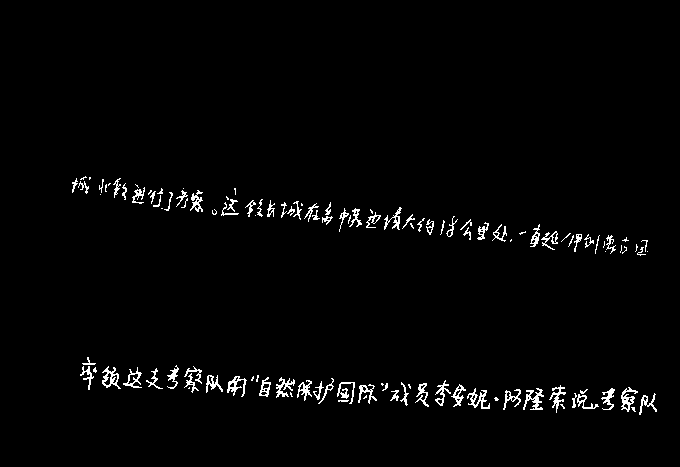 城北段进行了考察。这段长城在离中蒙边境大约18公里处,一直延伸到蒙古国
率领这支考察队的“自然保护国际”成员李安妮·阿隆索说,考察队